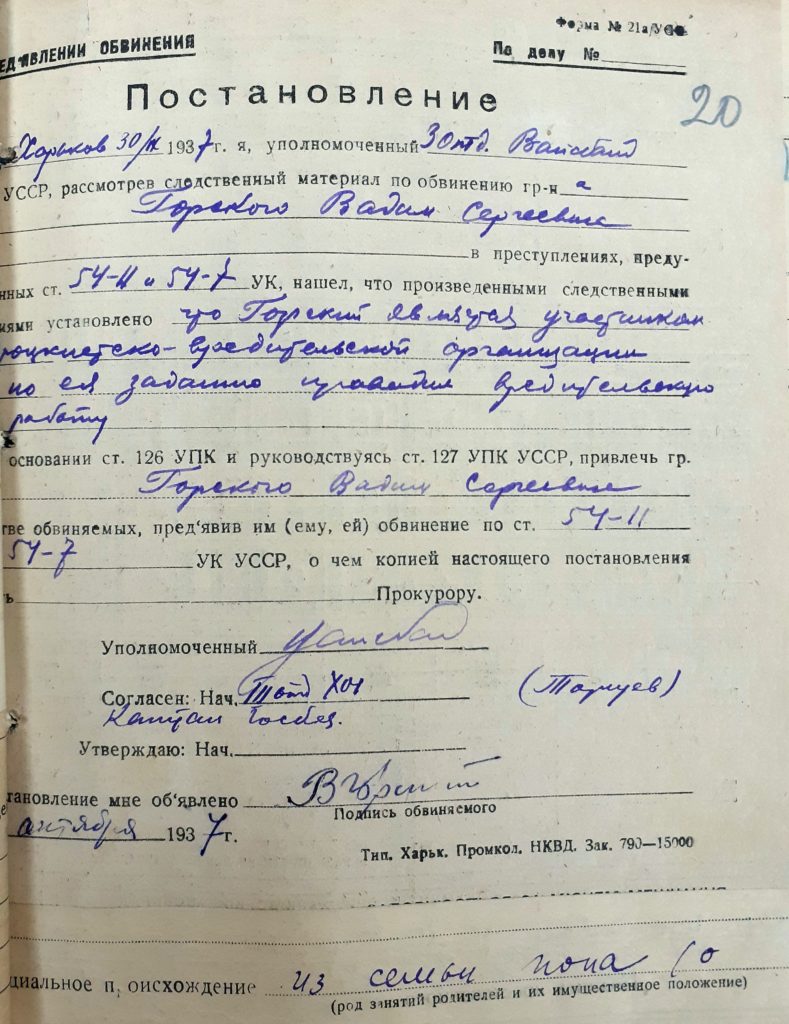 Форма № 21а/УСО
ЕД'ЯВЛЕНИИ ОБВИНЕНИЯ
По делу №
Постановление
20
Харьков 30/IX 1937г. я, уполномоченный 3 отд.
УССР, рассмотрев следственный материал по обвинению гр-н а
Горского Вадим Сергеевич
в преступлениях, преду-
нных ст. 54-11 и 54-7 УК, нашел, что произведенными следственными
иями установлено что Горский является участником
роцкистско-вредительской организации
по ея заданию проводил вредительскую
работу
основании ст. 126 УПК и руководствуясь ст. 127 УПК УССР, привлечь гр.
Горского Вадим Сергеевич
тве обвиняемых, пред'явив им (ему, ей) обвинение по ст. 54-11
54-7 УК УССР, о чем копией настоящего постановления
ь Прокурору.
Уполномоченный
Согласен: Нач. III отд
Капитан Госбез.
Утверждаю: Нач.
тановление мне об'явлено
Подпись обвиняемого
октября 1937г.
Тип. Харьк. Промкол. НКВД. Зак. 790—15000
циальное п оисхождение из семьи попа
(род занятий родителей и их имущественное положение)